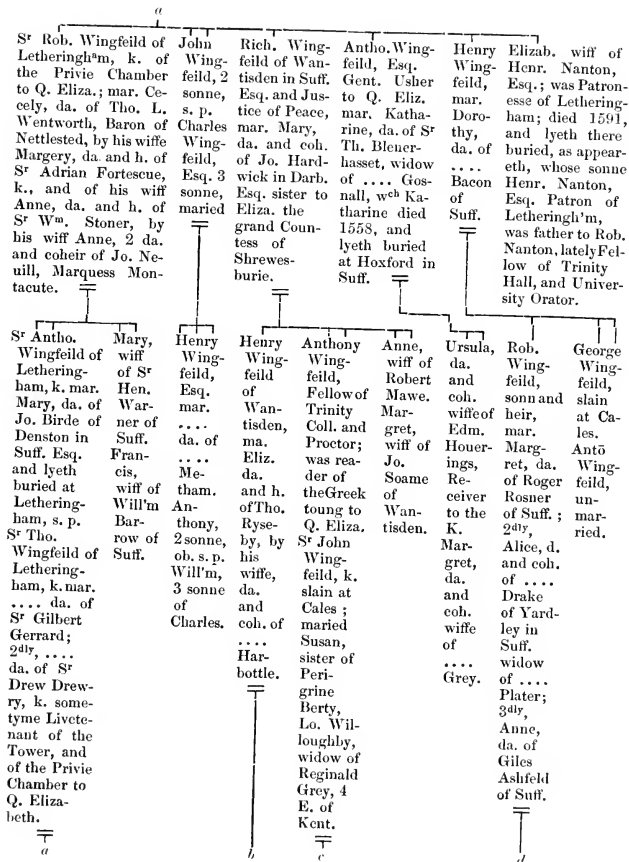 a
Sr Rob. Wingfeild of
Letheringham, k. of
the Privie Chamber
to Q. Eliza.; mar. Ce-
cely, da. of Tho. L.
Wentworth, Baron of
Nettlested, by his wiffe
Margery, da. and h. of
Sr Adrian Fortescue,
k., and of his wiff
Anne, da. and h. of
Sr Wm. Stoner, by
his wiff Anne, 2 da.
and coheir of Jo. Ne-
uill, Marquess Mon-
tacute.
John
Wing-
feild, 2
sonne,
s. p.
Charles
Wing-
feild,
Esq. 3
sonne,
maried
Rich. Wing-
feild of Wan-
tisden in Suff.
Esq. and Jus-
tice of Peace,
mar. Mary,
da. and coh.
of Jo. Hard-
wick in Darb.
Esq. sister to
Eliza. the
grand Coun-
tess of
Shrewes-
burie.
Antho. Wing-
feild, Esq.
Gent. Usher
to Q. Eliz.
mar. Katha-
rine, da. of Sr
Th. Bleuer-
hasset, widow
of .... Gos-
nall, wch Ka-
tharine died
1558, and
lyeth buried
at Hoxford in
Suff.
Henry
Wing-
feild,
mar.
Doro-
thy,
da. of
....
Bacon
of
Suff.
Elizab. wiff of
Henr. Nanton,
Esq.; was Patron-
esse of Lethering-
ham; died 1591,
and lyeth there
buried, as appear-
eth, whose sonne
Henr. Nanton,
Esq. Patron of
Letheringh'm,
was father to Rob.
Nanton, lately Fel-
low of Trinity
Hall, and Univer-
sity Orator.
Sr Antho.
Wingfeild of
Lethering-
ham, k. mar.
Mary, da. of
Jo. Birde of
Denston in
Suff. Esq.
and lyeth
buried at
Lethering-
ham, s. p.
Sr Tho.
Wingfeild of
Lethering-
ham, k. mar.
.... da. of
Sr Gilbert
Gerrard;
2dly, ....
da. of Sr
Drew Drew-
ry, k. some-
tyme Livete-
nant of the
Tower, and
of the Privie
Chamber to
Q. Eliza-
beth.
a
Mary,
wiff
of Sr
Hen.
War-
ner of
Suff.
Fran-
cis,
wiff of
Will'm
Bar-
row of
Suff.
Henry
Wing-
feild,
Esq.
mar.
....
da. of
....
Me-
tham.
An-
thony,
2 sonne,
ob. s. p.
Will'm,
3 sonne
of
Charles.
Henry
Wing-
feild
of
Wan-
tisden,
ma.
Eliz.
da.
and h.
of Tho.
Ryse-
by, by
his
wiffe,
da.
and
coh. of
....
Har-
bottle.
b
Anthony
Wing-
feild,
Fellow of
Trinity
Coll. and
Proctor;
was rea-
der of
the Greek
toung to
Q. Eliza.
Sr John
Wing-
feild, k.
slain at
Cales;
maried
Susan,
sister of
Peri-
grine
Berty,
Lo. Wil-
loughby,
widow of
Reginald
Grey, 4
E. of
Kent.
c
Anne,
wiff of
Robert
Mawe.
Mar-
gret,
wiff of
Jo.
Soame
of
Wan-
tisden.
Ursula,
da.
and
coh.
wiffe of
Edm.
Houer-
ings,
Re-
ceiver
to the
K.
Mar-
gret,
da.
and
coh.
wiffe
of
....
Grey.
Rob.
Wing-
feild,
sonn and
heir,
mar.
Marg-
ret, da.
of Roger
Rosner
of Suff.;
2dly,
Alice, d.
and coh.
of ....
Drake
of Yard-
ley in
Suff.
widow
of ....
Plater;
3dly,
Anne,
da. of
Giles
Ashfeld
of Suff.
d
George
Wing-
feild,
slain
at Ca-
les.
Antō
Wing-
feild,
un-
mar-
ried.